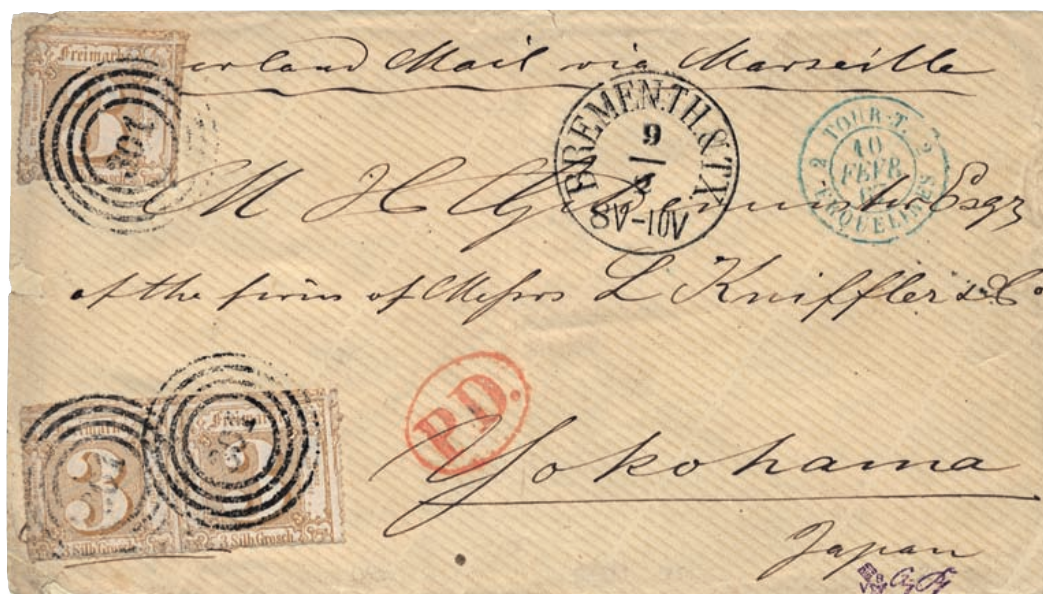 Freimarke
301
erland Mail via Marseille
BREMEN.TH.&TX.
9
2
8V-10V
2 TOUR-T. 2
10
FEVR
ERQUELINES
M H Gildemeister Esqr
of the firm of Messrs L Kniffler & Co
P.D.
Freimarke
3
3 Silb Grosch
301
3 Silb Grosch
Yokohama
Japan